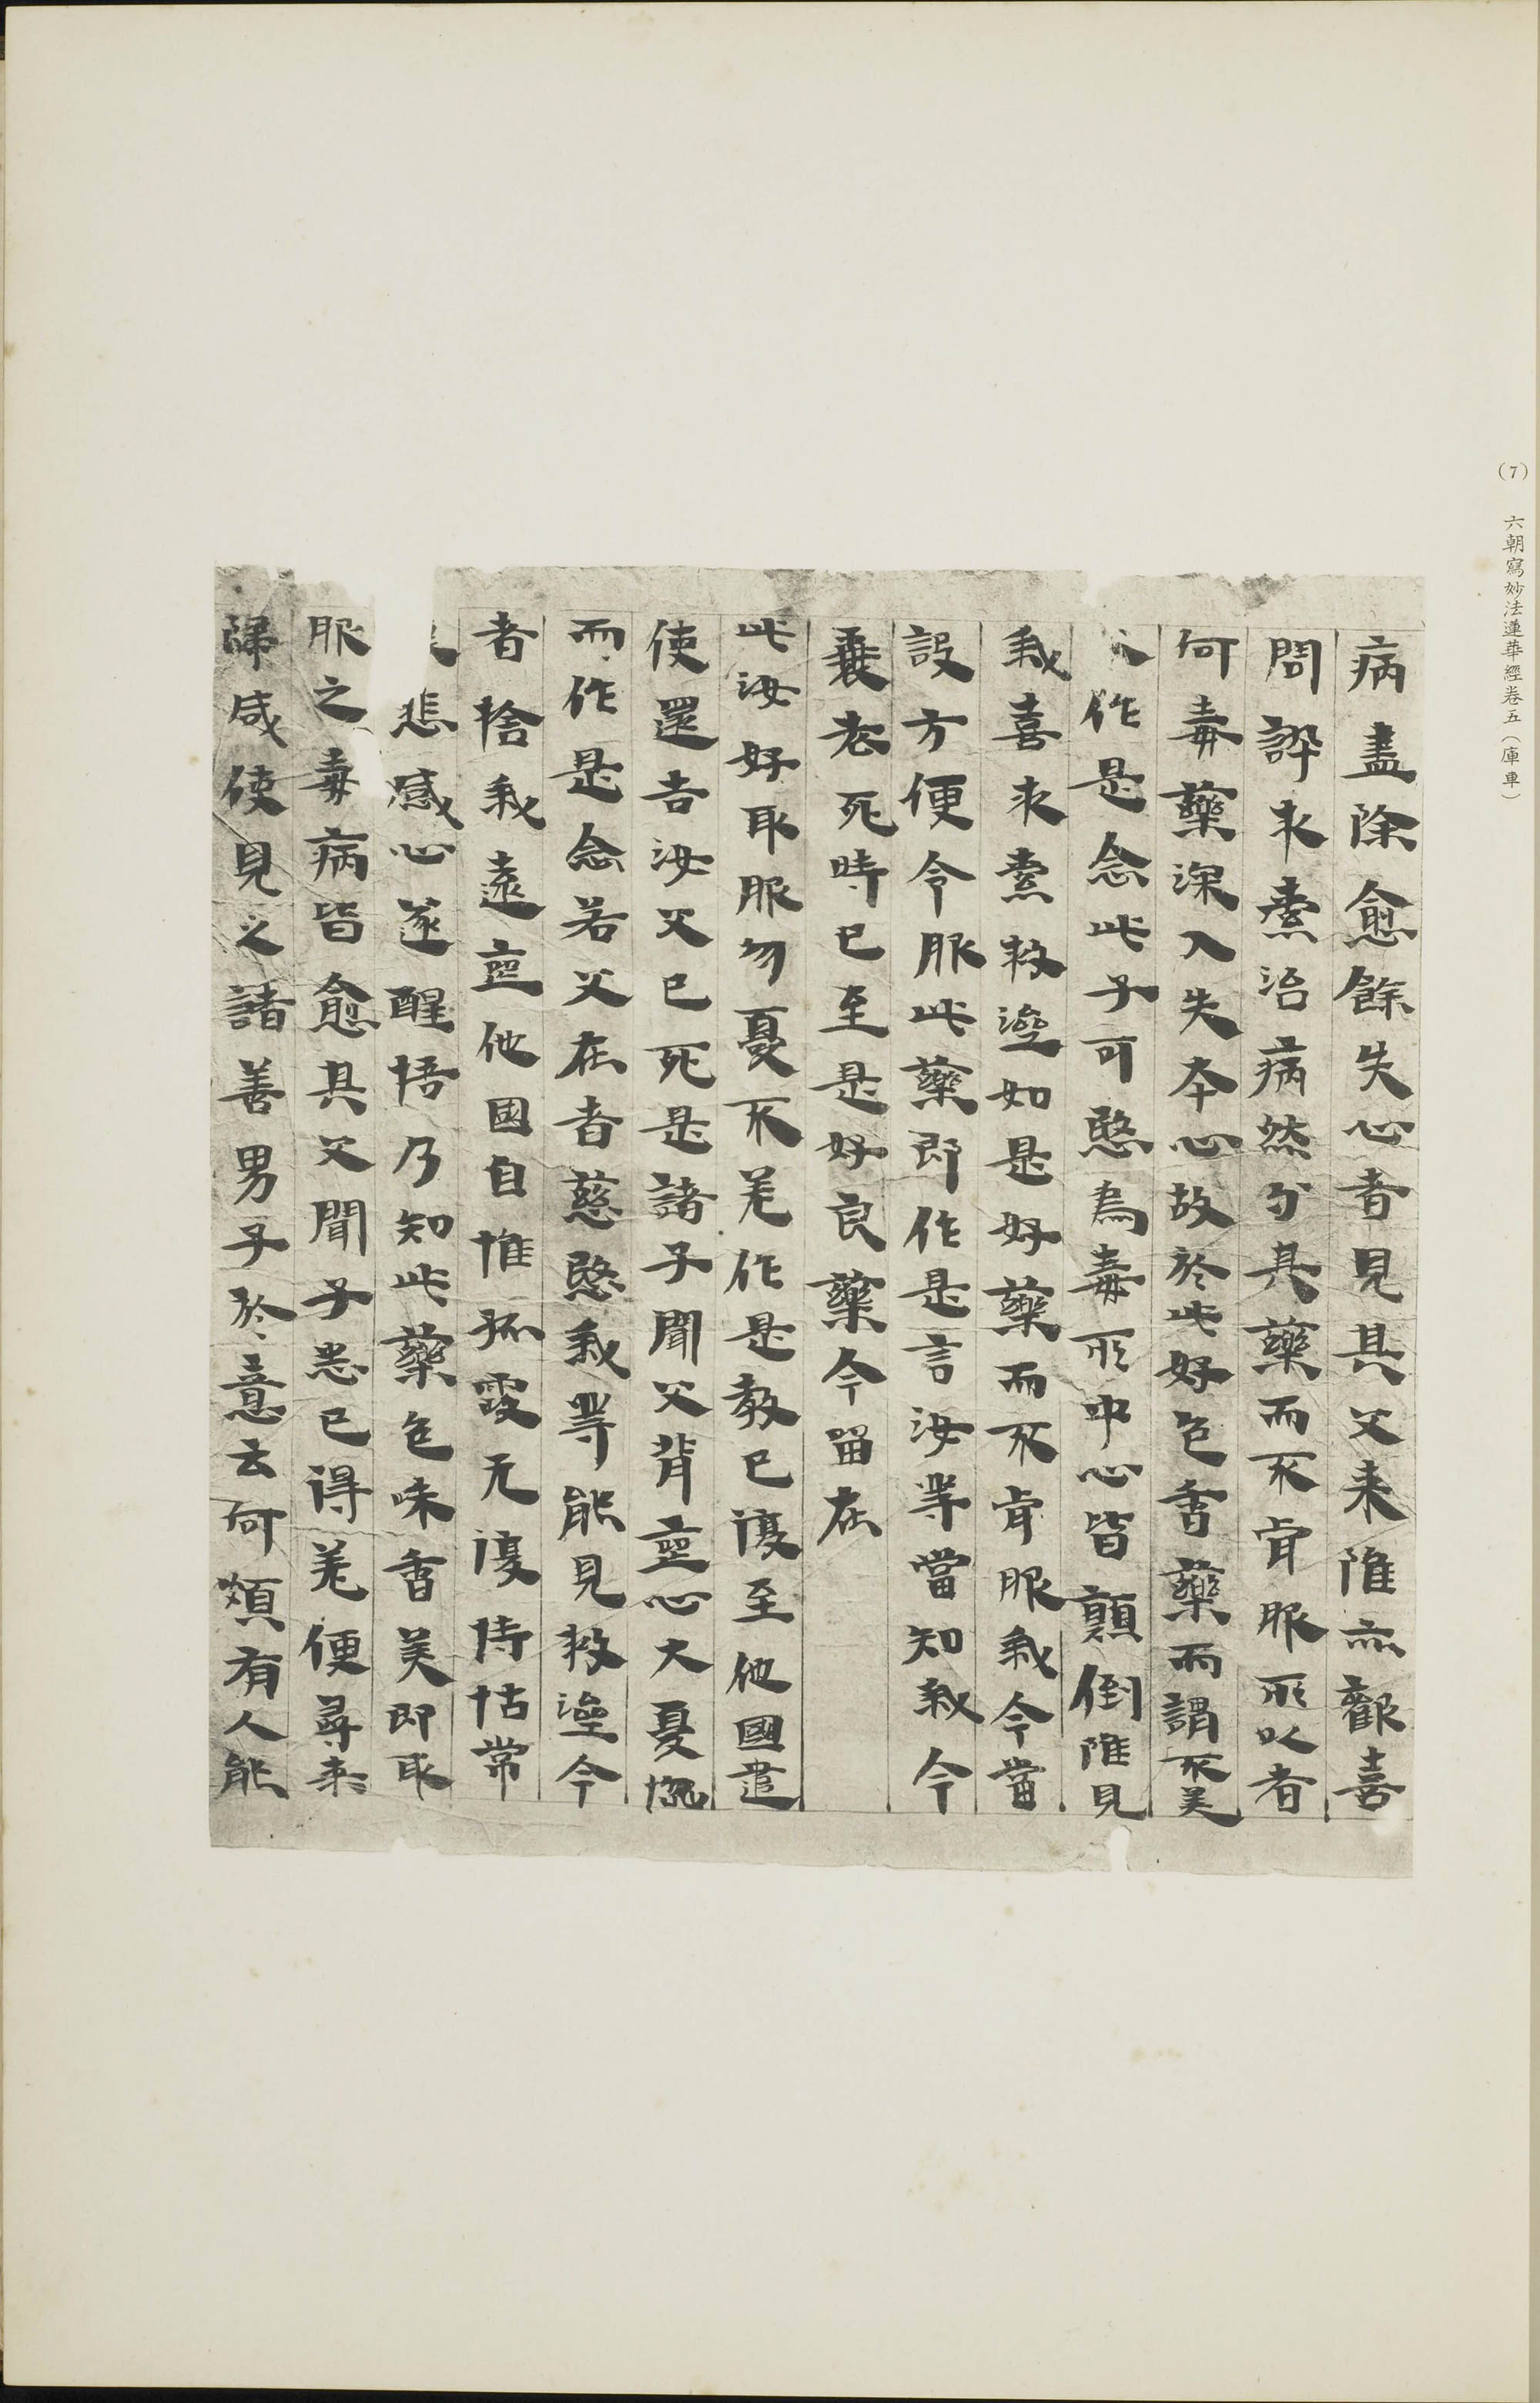 (7) 六朝寫妙法蓮華經卷五(庫車)
病盡除愈餘失心者見其父来隹亦歡喜
問訊求索治病然与其藥而不肯服所以者
何毒藥深入失本心故於此好色香藥而謂不美
作是念此子可愍為毒所中心皆顛倒隹見
我喜求索救逆如是好藥而不肯服我今當
設方便令服此藥即作是言汝等當知我今
衰老死時已至是好良藥今留在
此汝好取服勿憂不差作是教已復至他國遣
使還告汝父已死是諸子聞父背喪心大憂惱
而作是念若父在者慈愍我等能見救逆今
者捨我遠喪他國自惟孤露无復恃怙常
悲感心遂醒悟乃知此藥色味香美即取
服之毒病皆愈其父聞子悉已得差便尋来
歸咸使見之諸善男子於意云何頗有人能